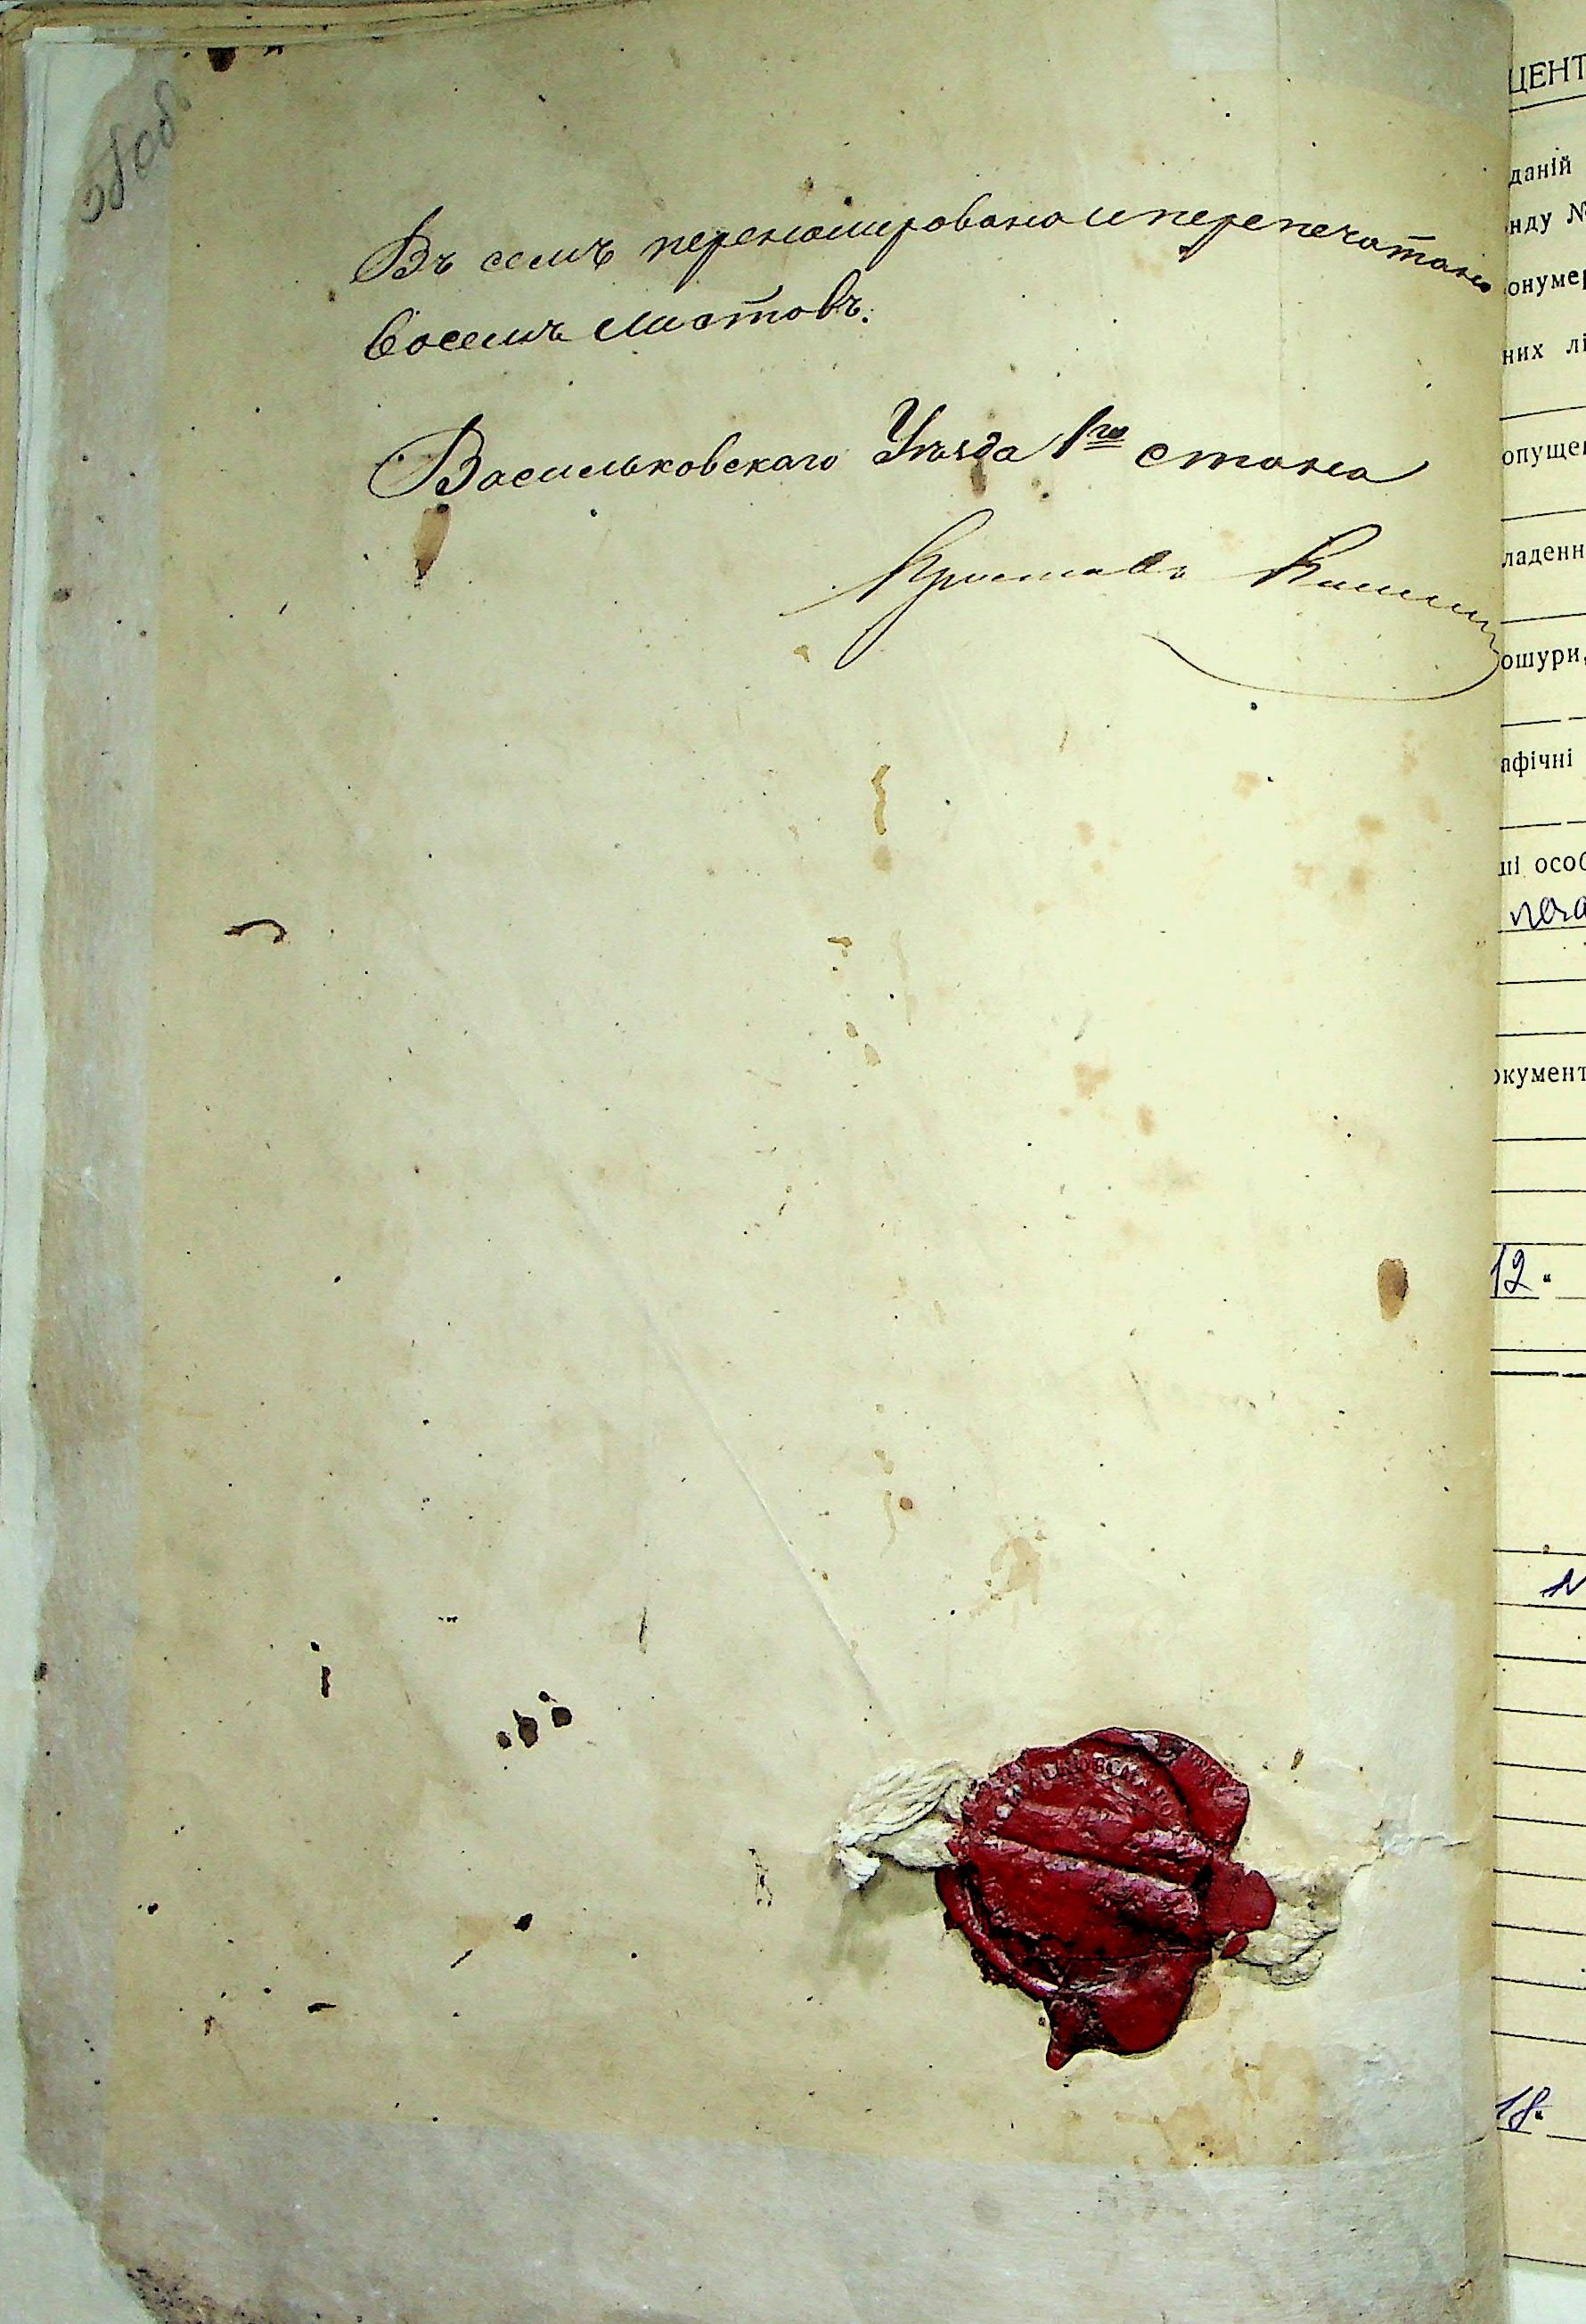 Въ семъ перенамировано и перепечатано
восемь листовъ.
Васильковскаго Уѣзда 1го стана
Приставъ
ЦЕНТ
даній
нду №
онумер
них лі
опущен
ладенн
ошури,
афічні
ші особ
окумент
12.
18.